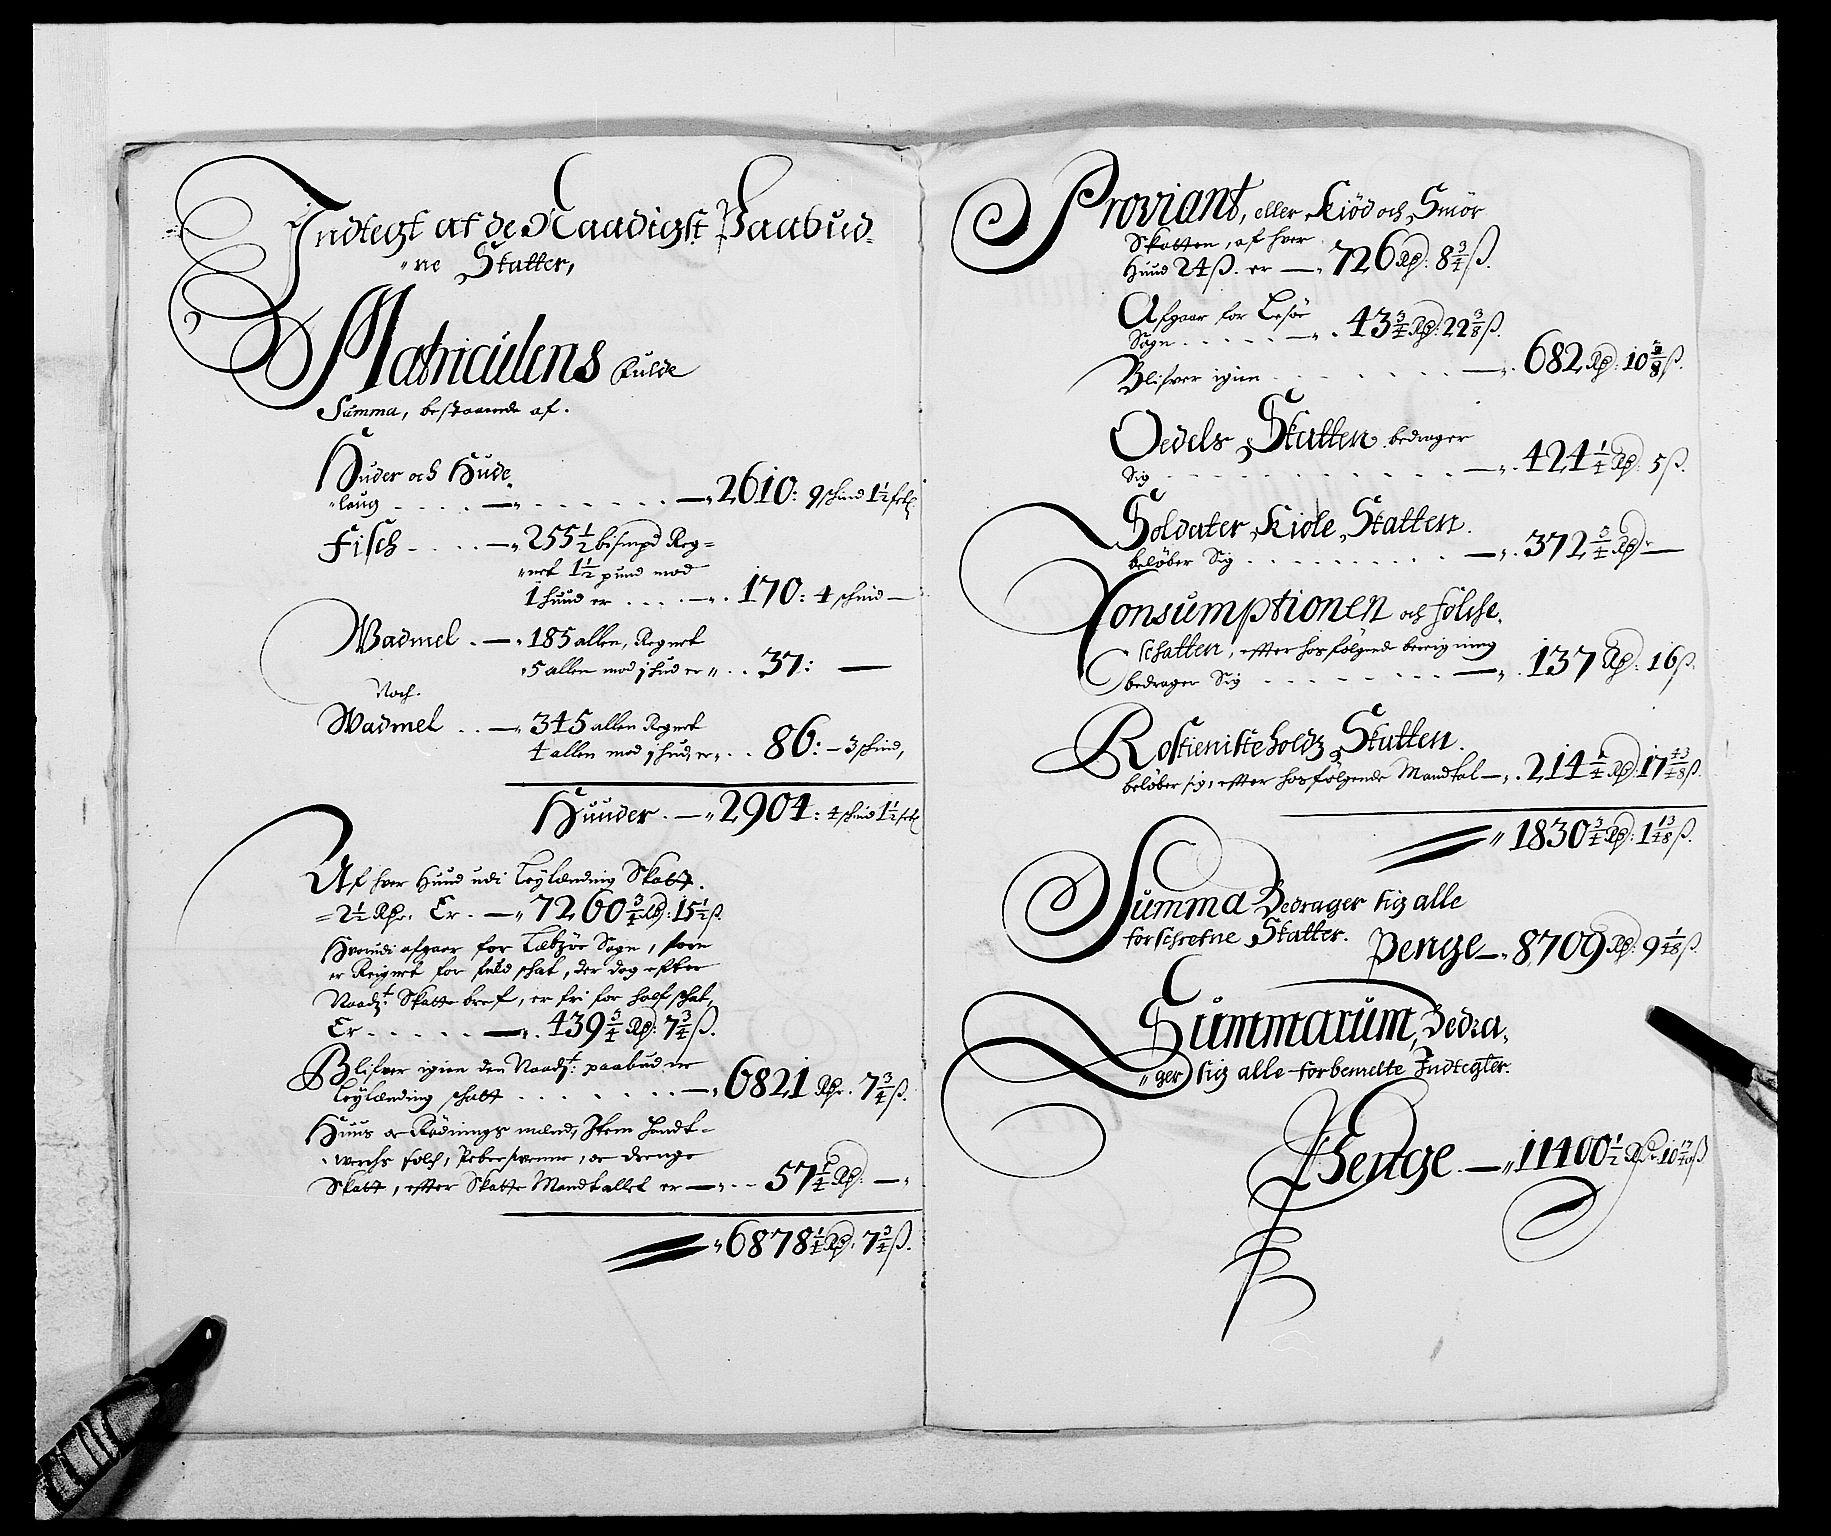 Indtegt af de Naadigst Paabud-
"ne Skatter,
Matriculens fulde
Summa, bestaaende af.
Huder och Hude,
"laug . . . . — " . . . . . . — " 2610: 9 schind 1½
Fisch . . . . — " 255½ bismpd Reg=
"net 1½ pund mod
1 huud er . . . — " . 170: 4 schind —
Wadmel . — " 185 allen, Regnet
" 5 allen mod j hud er " . . 37: —
Noch.
Wadmel . . — " 345 allen Regnet
4 allen mod j hud, er " . . 86: — 3 schind,
Huuder . — " 2904: 4 schind 1½
Af hver Huud udi Leylænding Skatt.
= 2½ Rdr. Er . — " 7260¾ Rd: 15½ ß.
Hvorudi afgaar for Sogn, som
er Reignet for fuld schat, der dog efter
Naadst: Skatte bref, er fri for half schat,
Er . . . . . — " . 439¾ Rd: 7¾ ß.
Blifver igien den Naadst: paabudne
Leylænding schatt . . . . . . . . — " 6821 Rdr. 7¾ ß.
Huus og Rødnings mænd, Item Handt-
" werchs folch, og drenge
Skatt, efter Skatte Mandtallet er — " . . 57¼ Rd: — "
" 6878¼ Rd: 7¾ ß.
Proviant, eller Kiød och Smør
Skatten, af hver
Huud 24 ß. er — " 726 Rd: 8¾ ß.
Afgaar for Lesöe
Sogn . . . . . . — " . 43¾ Rd: 22⅜ ß.
Blifver igien . . . . . . . — " . 682 Rd: 10⅜ ß.
Oedels Skatten bedrager
Sig . . . . . . . . . . . — " . 424¼ Rd: 5 ß.
Soldater Kiole Skatten.
beløber Sig . . . . . . . . . . — " . 372¾ Rd: —
Consumptionen och folche,
schatten, efter hosfølgende bereigning
bedrager Sig . . . . . . . . — " . 137 Rd: 16 ß.
Rostienisteholdz Skatten.
beløber sig, efter hosfølgende Mandtal — " . 214¼ Rd: 17 43/48 ß.
" 1830¾ Rd: 1 13/48 ß.
Summa Bedrager sig alle
forschrefne Skatter. Penge — " 8709 Rd: 9 1/48 ß.
Summarum, Bedra,
"ger sig alle forbemelte Indtegter.
Penge . — " 11400½ Rdr. 10 ß